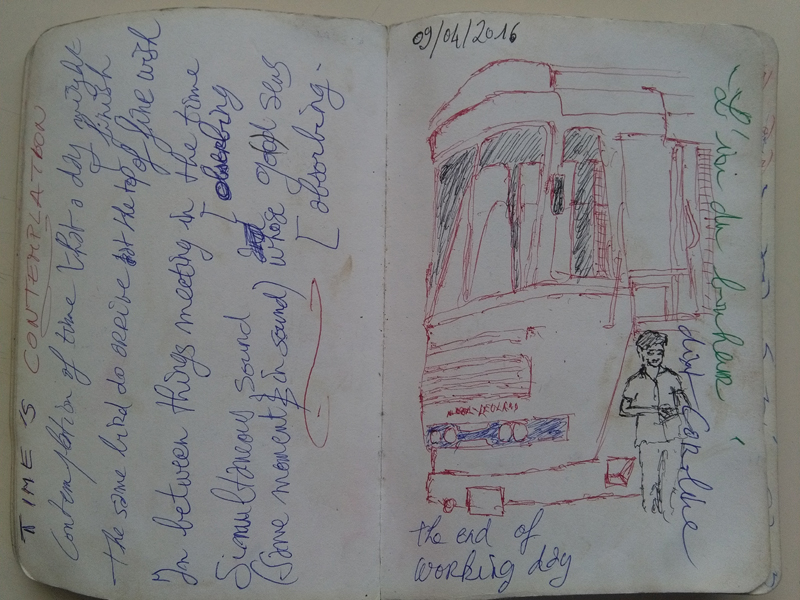 TIME'S CONTEMPLATION
Contemplation of time that a day might
finish
the same bird do arrive but the top of fine wish
In between things meeting in the time
Simultaneous sound [
(same moment in sound) whose good sens
[absorbing.
09/04/2016
LEYLAND
the end of
working day
du bonheur
dixit Caroline